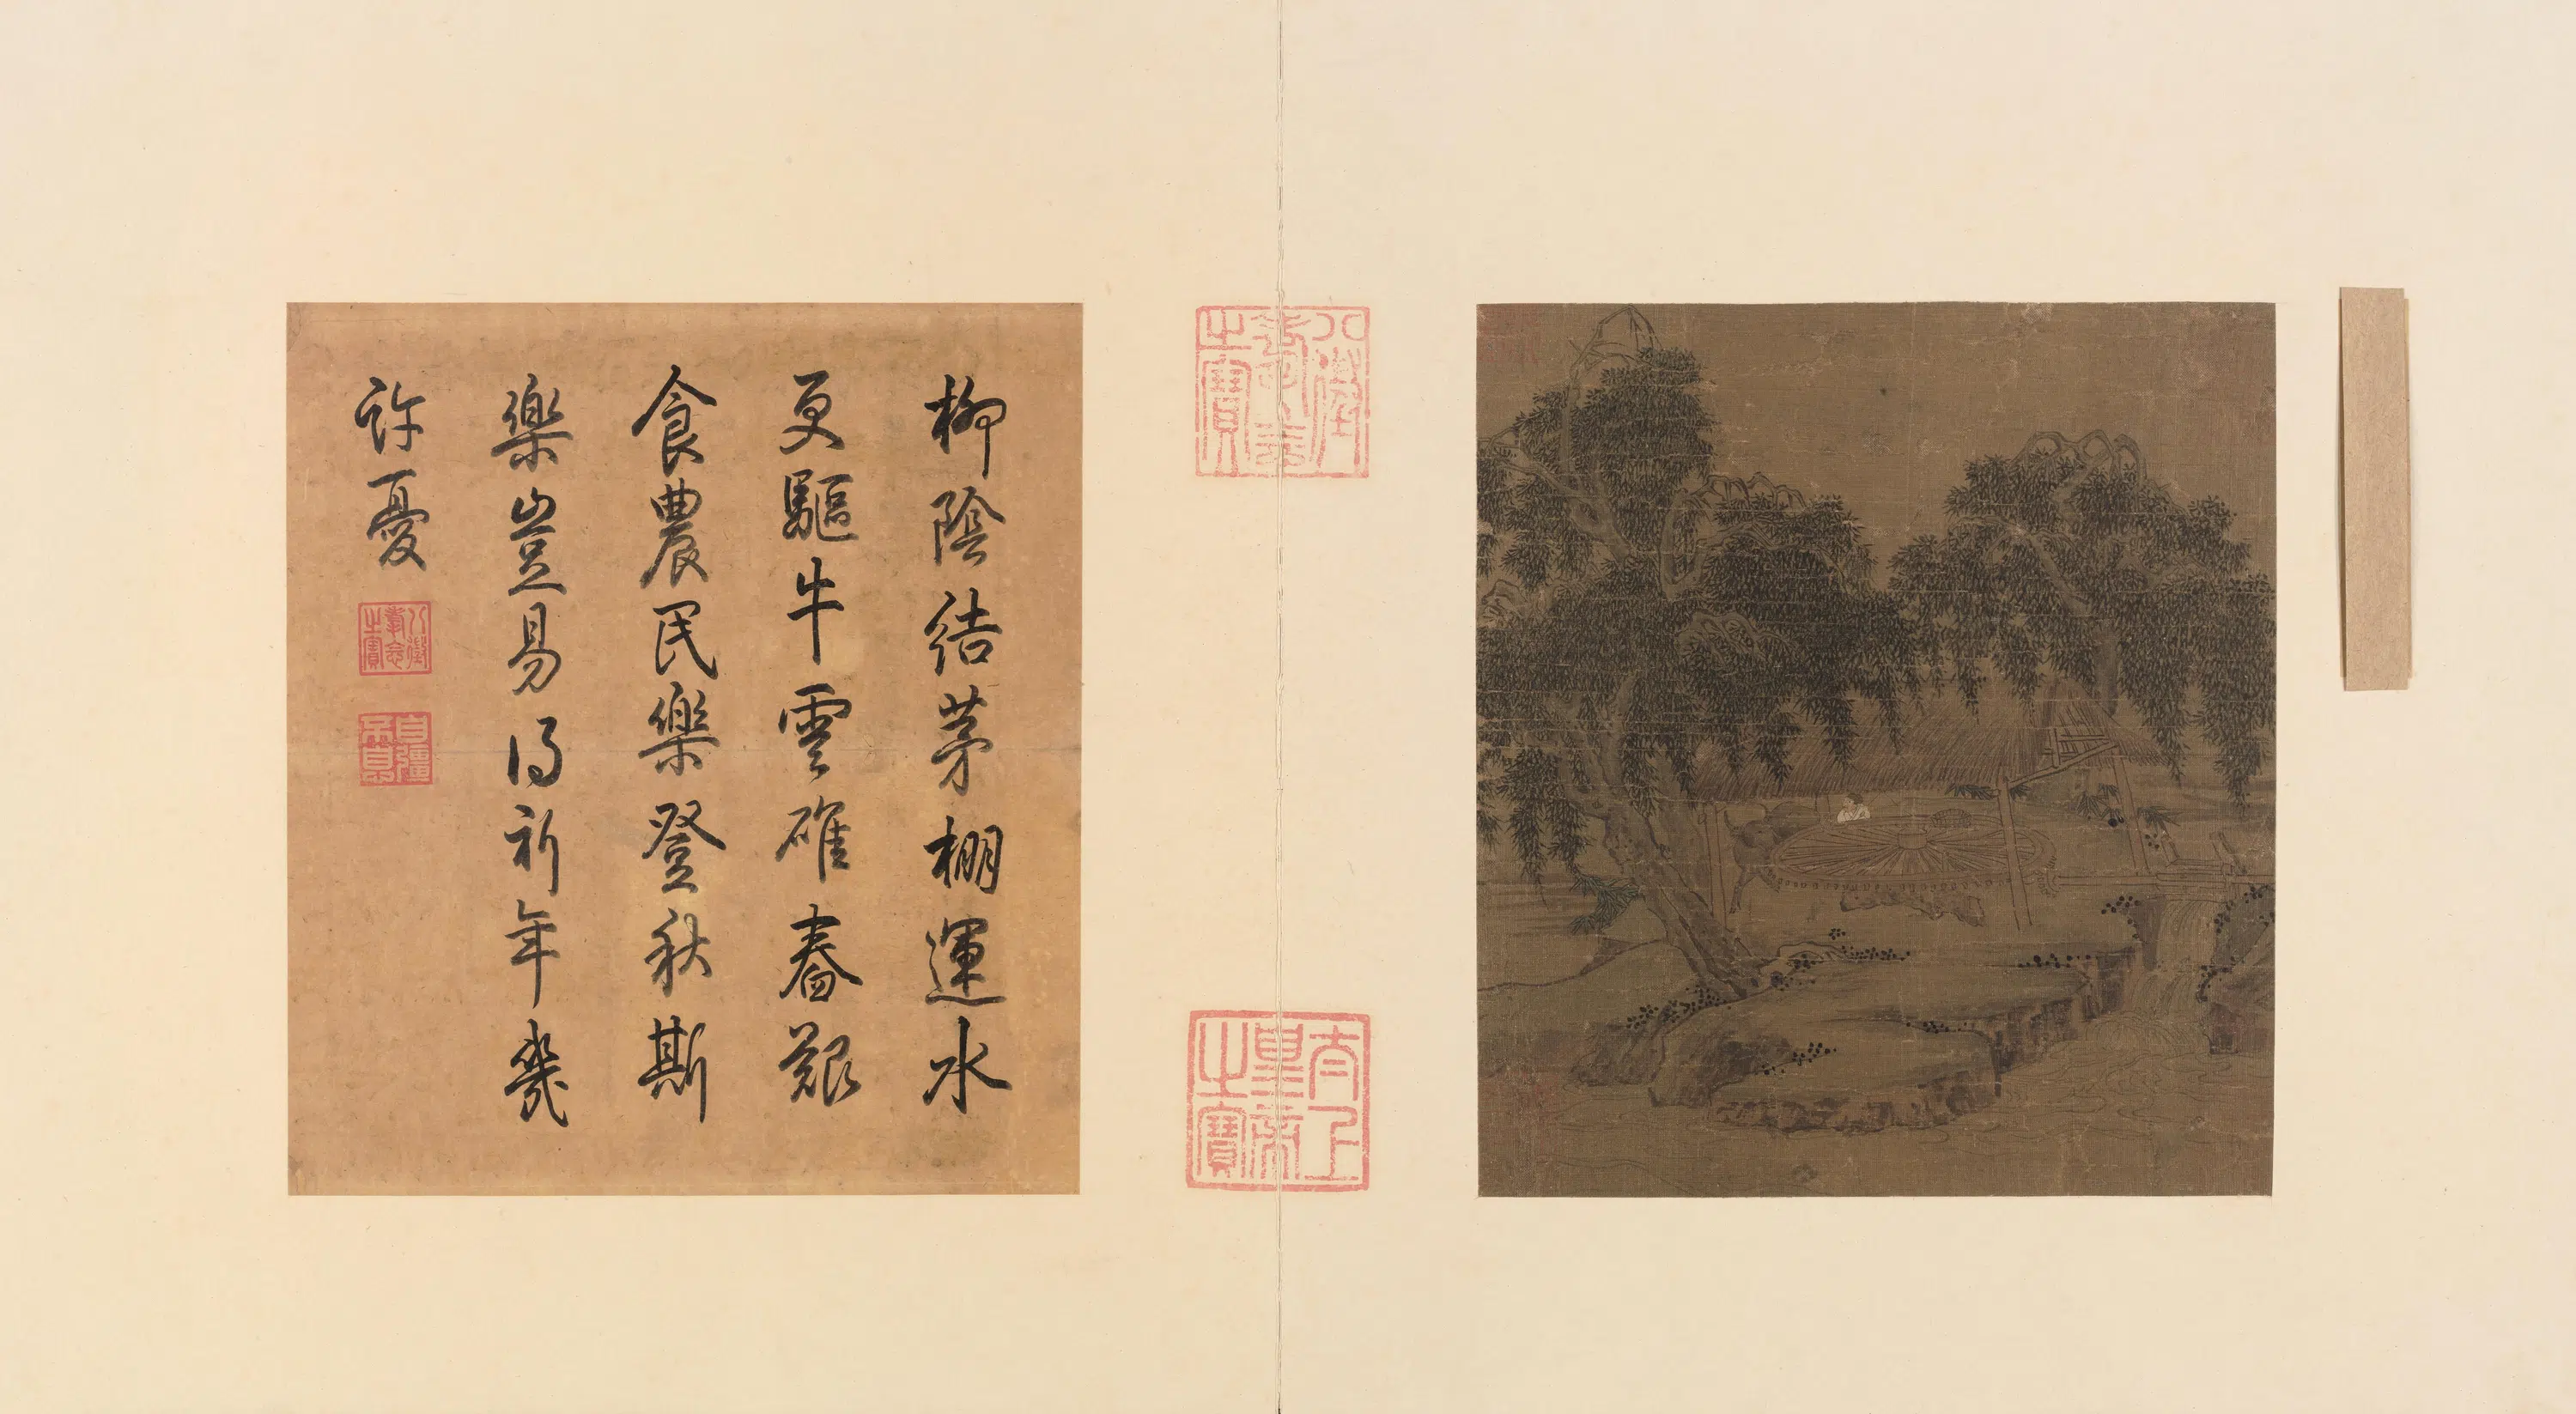 柳陰結茅棚運水
更驅牛雲碓舂艱
食農民樂登秋斯
樂豈易得祈年幾
許憂
八徵耄念之寶
自彊不息
八徵耄念之寶
太上皇帝之寶